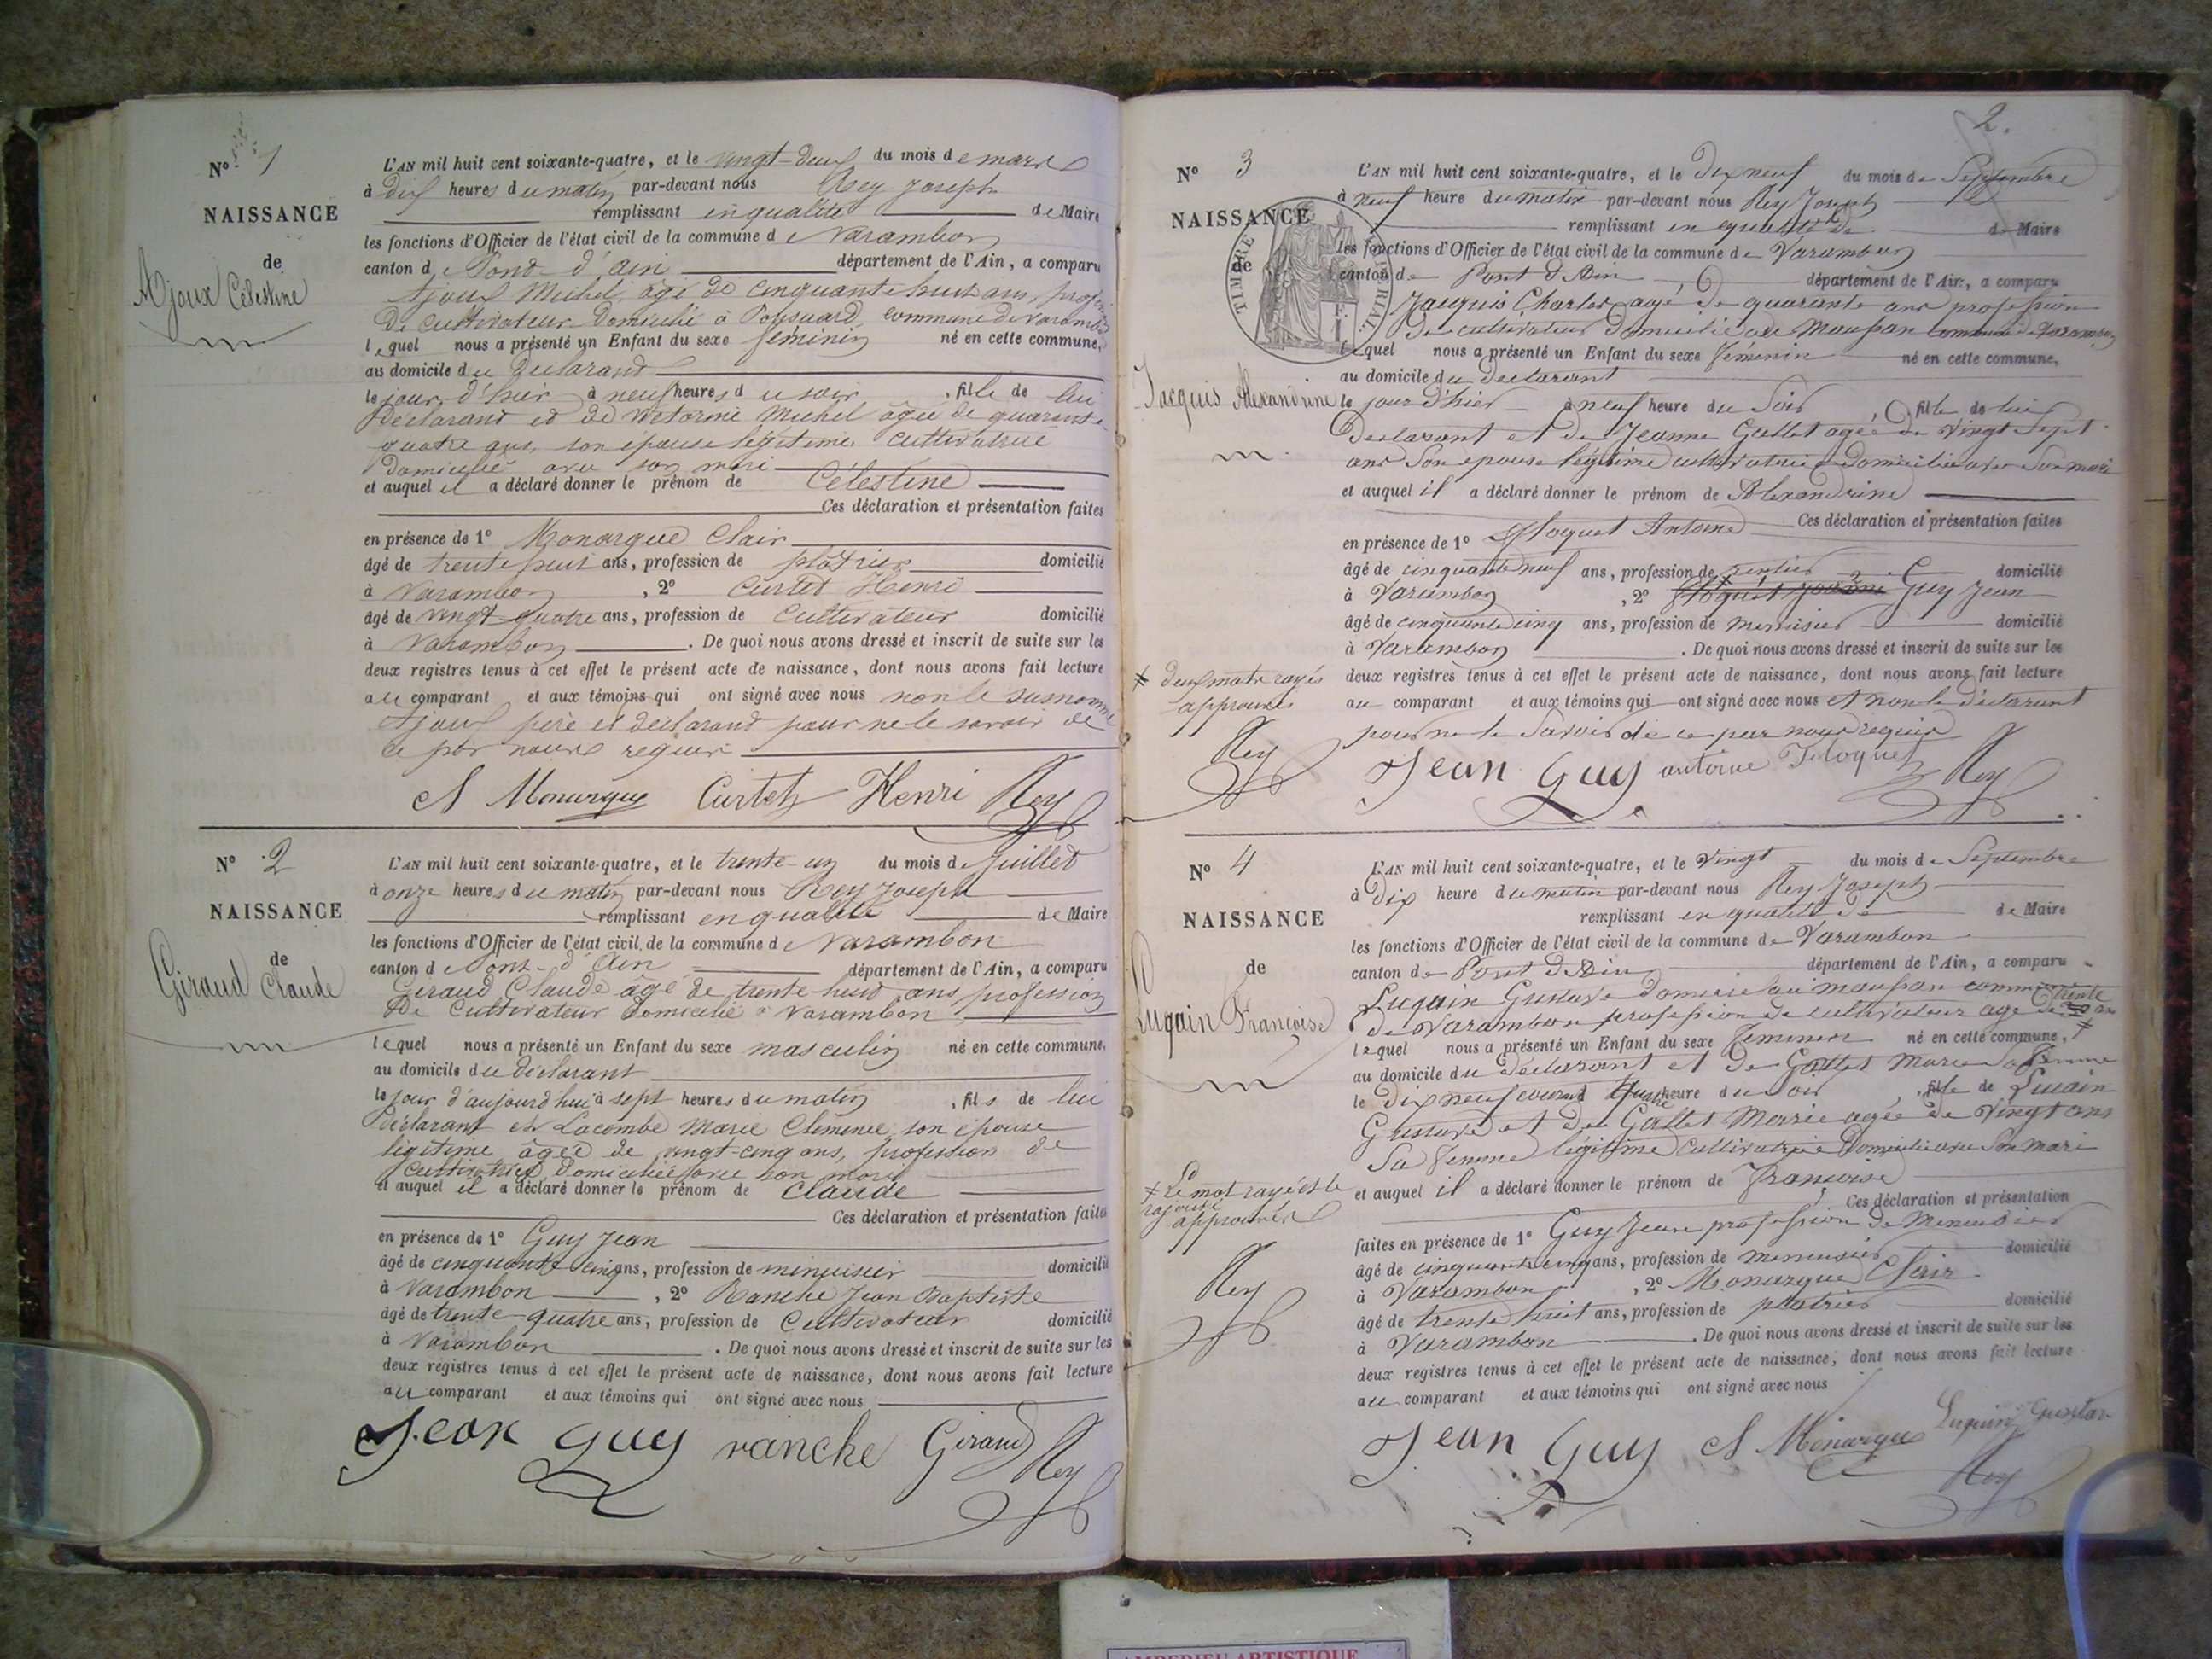 N° 1
NAISSANCE
de
Ajoux Célestine
L'AN mil huit cent soixante-quatre, et le vingt-deux du mois de mars
à dix heures du matin par-devant nous Rey Joseph
remplissant en qualité de Maire
les fonctions d'Officier de l'état civil de la commune de Varambon
canton de Pond d'ain département de l'Ain, a comparu
Ajoux Michel, âgé de cinquante huit ans, profession
de cultivateur domicilié à commune de Varambon
lequel nous a présenté un Enfant du sexe féminin né en cette commune,
au domicile du déclarand
le jour d'hier à neuf heures du soir, fille de lui
déclarand et de Michel âgée de quarante
quatre ans, son épouse légitime, cultivatrice
domiciliée avec son mari
et auquel il a déclaré donner le prénom de Célestine
Ces déclaration et présentation faites
en présence de 1° Monarque Clair
âgé de trente huit ans, profession de plâtrier domicilié
à Varambon, 2° Curtet Henri
âgé de vingt-quatre ans, profession de cultivateur domicilié
à Varambon. De quoi nous avons dressé et inscrit de suite sur les
deux registres tenus à cet effet le présent acte de naissance, dont nous avons fait lecture
au comparant et aux témoins qui ont signé avec nous non le susnommé
Ajoux père et déclarand pour ne le savoir de
ce par nous requis
Cl Monarque Curtet Henri Rey
N° 2
NAISSANCE
de
Giraud Claude
L'AN mil huit cent soixante-quatre, et le trente-un du mois de Juillet
à onze heures du matin par-devant nous Rey Joseph
remplissant en qualité de Maire
les fonctions d'Officier de l'état civil de la commune de Varambon
canton de Pont-d'Ain département de l'Ain, a comparu
Giraud Claude âgé de trente-huit ans profession
de Cultivateur domicilié à Varambon
lequel nous a présenté un Enfant du sexe masculin né en cette commune,
au domicile du déclarant
le jour d'aujourd'hui à sept heures du matin, fils de lui
déclarant et Lacombe Marie Clémence, son épouse
légitime âgée de vingt-cinq ans, profession de
cultivatrice domiciliée avec son mari
et auquel il a déclaré donner le prénom de Claude
Ces déclaration et présentation faites
en présence de 1° Guy Jean
âgé de cinquante cinq ans, profession de menuisier domicilié
à Varambon, 2° Ranche Jean Baptiste
âgé de trente-quatre ans, profession de Cultivateur domicilié
à Varambon. De quoi nous avons dressé et inscrit de suite sur les
deux registres tenus à cet effet le présent acte de naissance, dont nous avons fait lecture
au comparant et aux témoins qui ont signé avec nous
Jean Guy ranche Giraud Rey
2.
N° 3
NAISSANCE
de
TIMBRE
Jacquis Alexandrine
L'AN mil huit cent soixante-quatre, et le Dix neuf du mois de Septembre
à neuf heure du matin par-devant nous Rey Joseph
remplissant en qualité de de Maire
les fonctions d'Officier de l'état civil de la commune de Varambon
canton de Pont d'Ain département de l'Ain, a comparu
Jacquis Charles agé de quarante ans profession
de cultivateur domicilié au Maupan commune de Varambon
lequel nous a présenté un Enfant du sexe Féminin né en cette commune,
au domicile du Déclarant
le jour d'hier à neuf heure du Soir, fille de lui
Déclarant et de Jeanne Gallet agée de Vingt Sept
ans Son épouse légitime cultivatrice domiciliée avec Son mari
et auquel il a déclaré donner le prénom de Alexandrine
Ces déclaration et présentation faites
en présence de 1° Floquet Antoine
âgé de cinquante neuf ans, profession de rentier domicilié
à Varambon, 2° Guy Jean
âgé de cinquante cinq ans, profession de menuisier domicilié
à Varambon. De quoi nous avons dressé et inscrit de suite sur les
deux registres tenus à cet effet le présent acte de naissance, dont nous avons fait lecture
au comparant et aux témoins qui ont signé avec nous et non le déclarant
pour ne le Savoir de ce par nous requis
deux mots rayés
approuvés
Rey
Jean Guy antoine Floquet Rey
N° 4
NAISSANCE
de
Luquin Françoise
L'AN mil huit cent soixante-quatre, et le Vingt du mois de Septembre
à Dix heure du matin par-devant nous Rey Joseph
remplissant en qualité de de Maire
les fonctions d'Officier de l'état civil de la commune de Varambon
canton de Pont d'Ain département de l'Ain, a comparu
Luquin Gustave domicilié au maupan commune
de Varambon profession de cultivateur agé de trente ans
lequel nous a présenté un Enfant du sexe Féminin né en cette commune,
au domicile du déclarant et de Gallet Marie Sa Femme
le Dix neuf courant heure du Soir, fille de Luquin
Gustave et de Gallet Marie agée de Vingt ans
Sa Femme légitime Cultivatrice Domiciliée avec Son mari
et auquel il a déclaré donner le prénom de Françoise
Ces déclaration et présentation
faites en présence de 1° Guy Jean profession de Menuisier
âgé de cinquante cinq ans, profession de menuisier domicilié
à Varambon, 2° Monarque Clair
âgé de trente huit ans, profession de platrier domicilié
à Varambon. De quoi nous avons dressé et inscrit de suite sur les
deux registres tenus à cet effet le présent acte de naissance, dont nous avons fait lecture
au comparant et aux témoins qui ont signé avec nous
Le mot rayé et le
rajouté
approuvés
Rey
Jean Guy Cl Monarque Luquin Gustave
Rey
AMBERIEU ARTISTIQUE